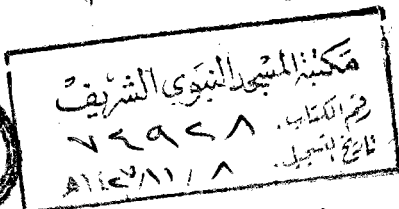 مكتبة المسجد النبوي الشريف
رقم الكتاب: ٧٤٩٢٨
تاريخ التسجيل: ٨ / ١١ / ١٤٢٣هـ